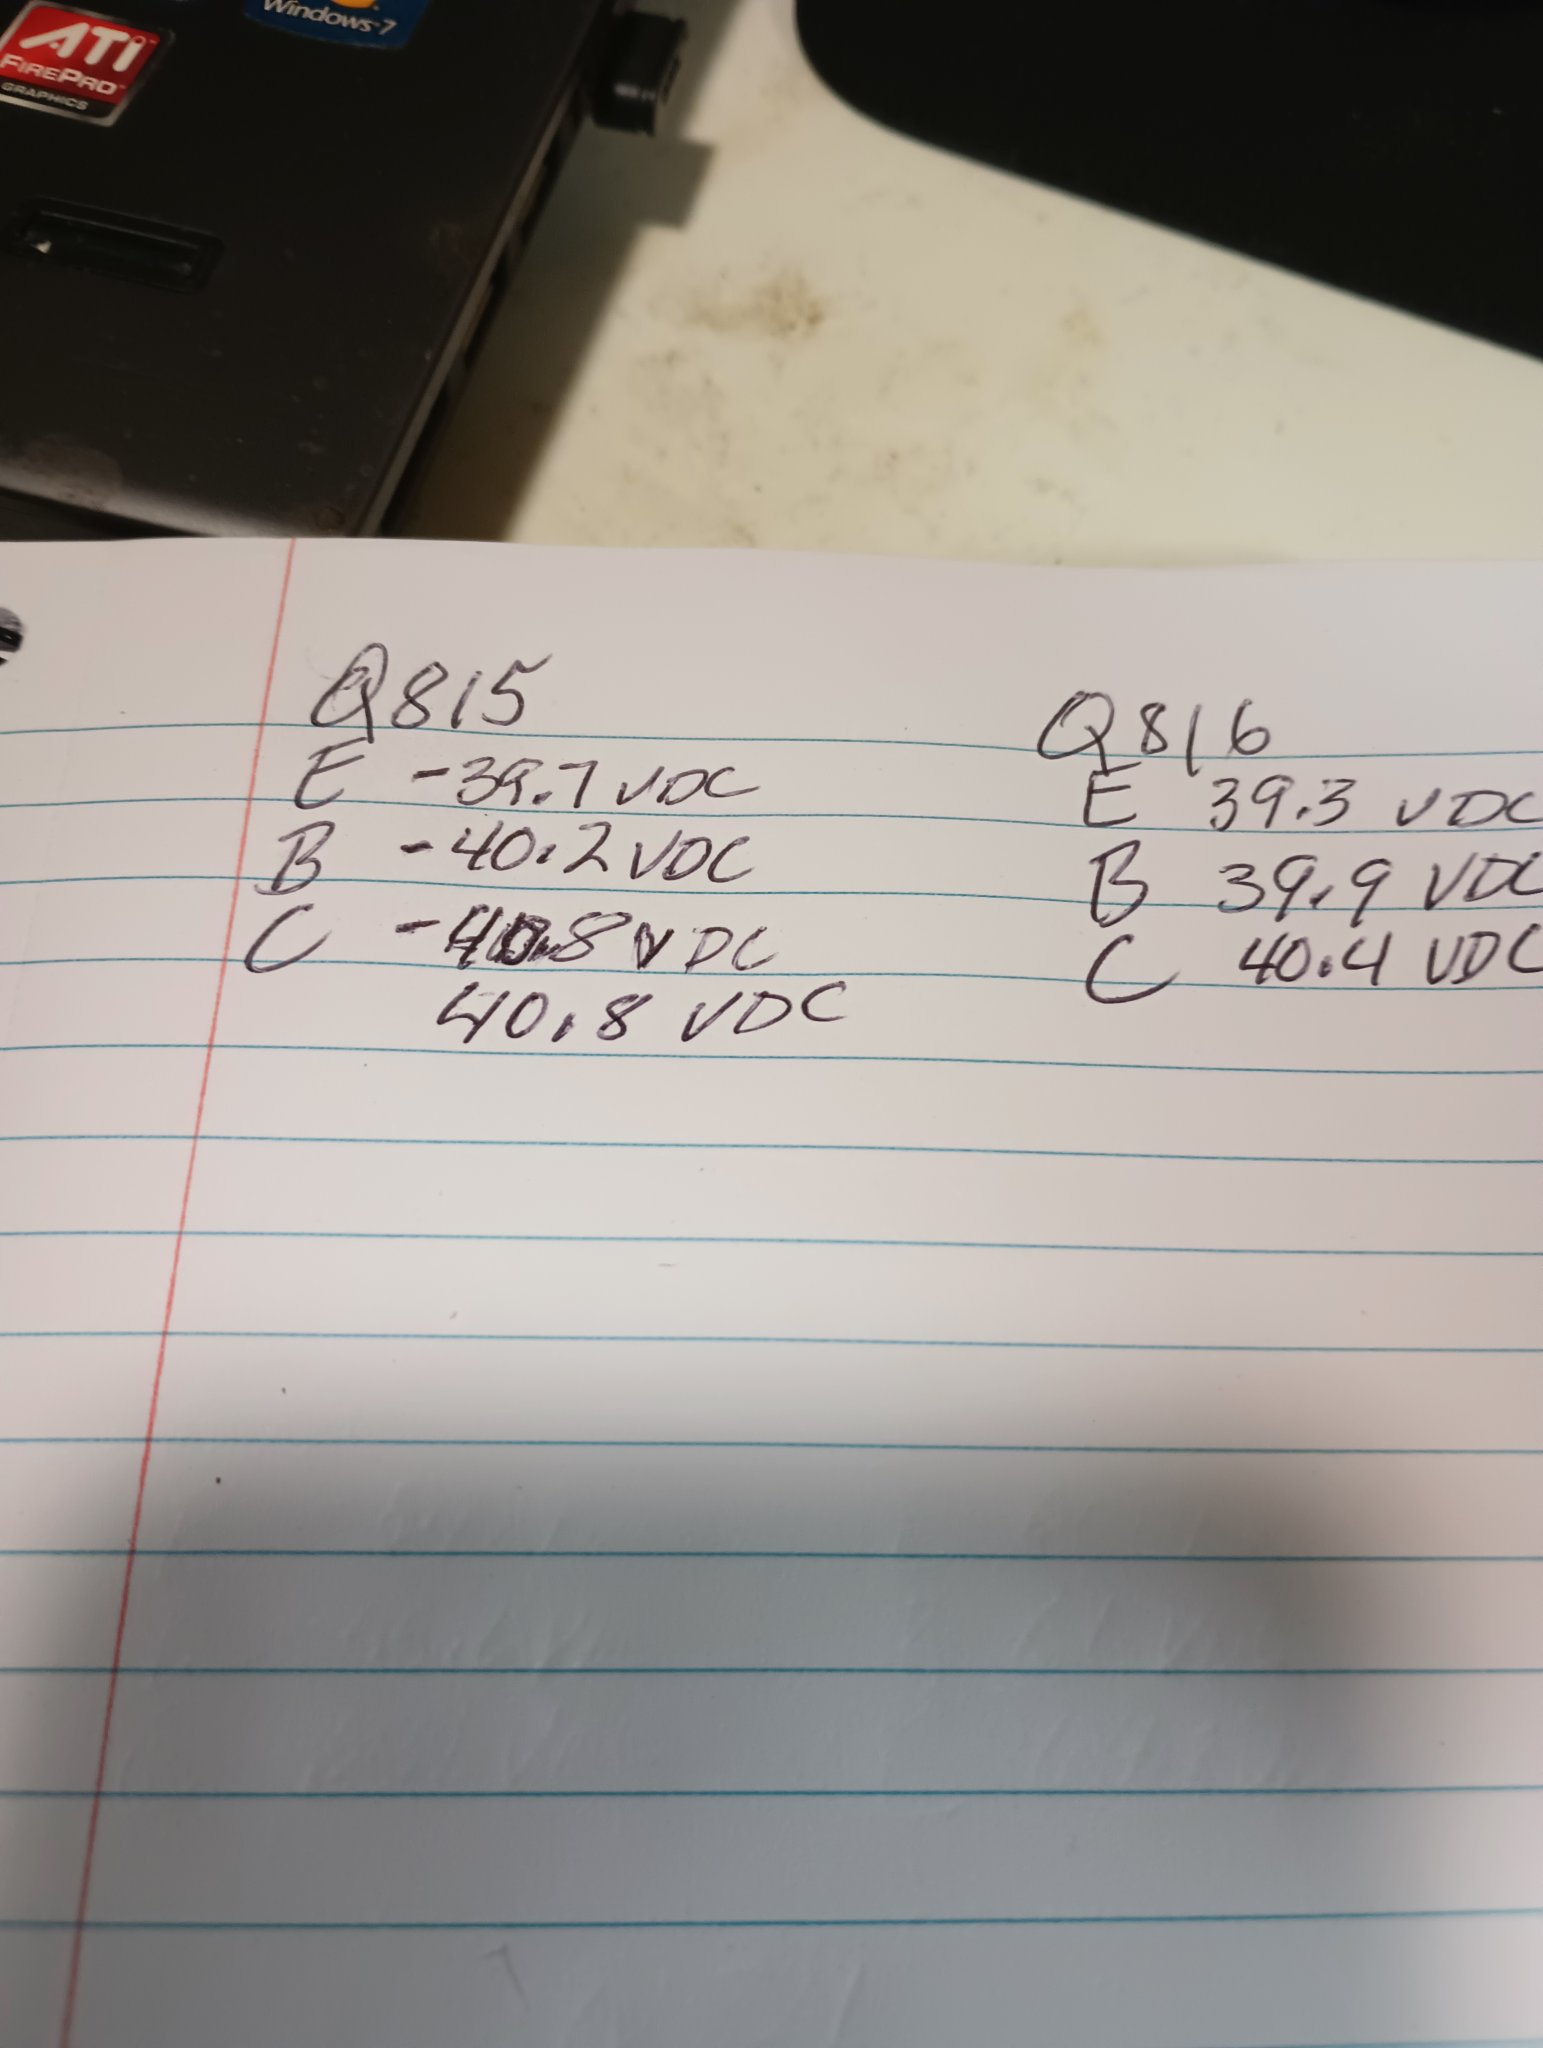 ATi
FIREPRO
GRAPHICS
Windows 7
Q815
E -39.7 VDC
B -40.2 VDC
C -40.8 VDC
40.8 VDC
Q816
E 39.3 VDC
B 39.9 VDC
C 40.4 VDC